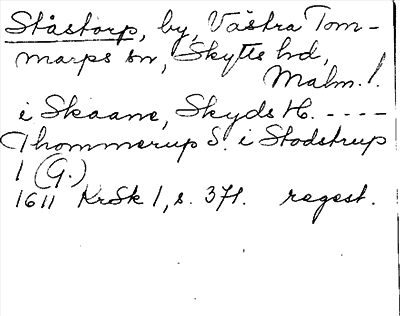 Ståstorp, by, Västra Tom-
marps sn, Skytts hd,
Malm. l.
i Skaane, Skyds H. ----
Thommerup S. i Stodstrup
1 (G.)
1611 KrSk 1, s. 371. regest.